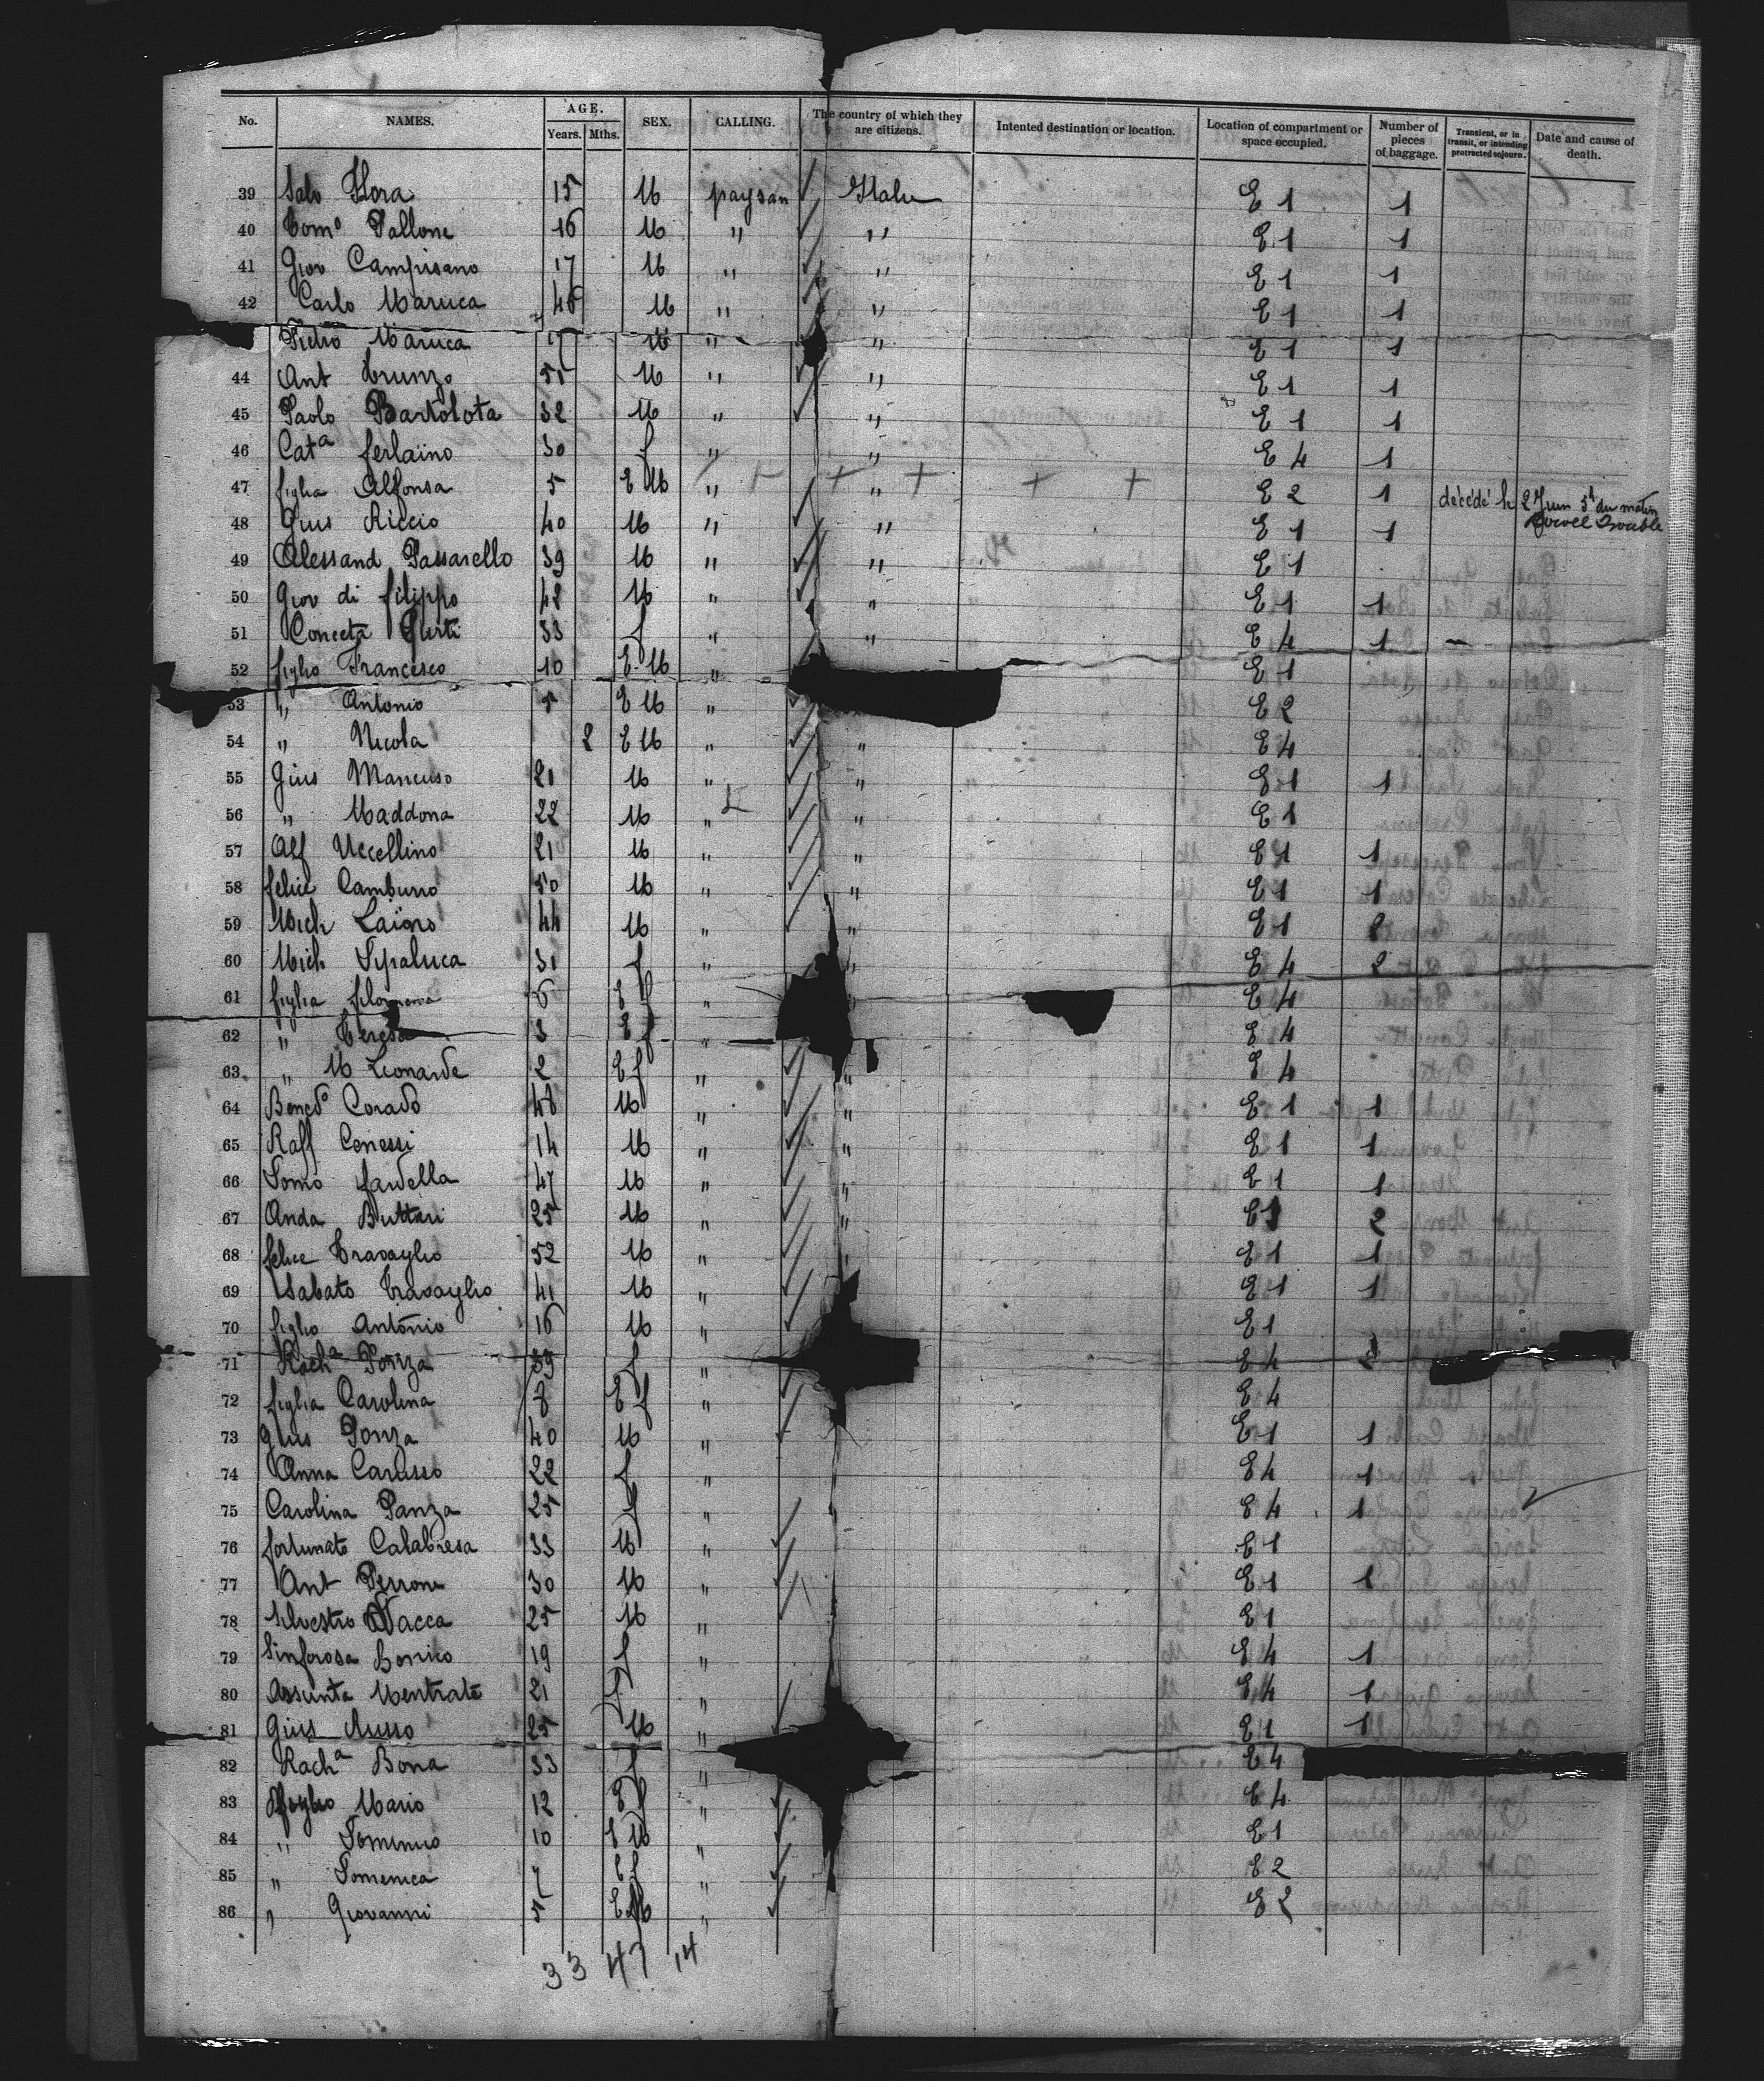 No. NAMES. AGE. Years. Mths. SEX. CALLING. The country of which they are citizens. Intented destination or location. Location of compartment or space occupied. Number of pieces of baggage. Transient, or in transit, or intending protracted sojourn. Date and cause of death.
39 Salv Flora 15 M paysan Italie E 1 1
40 Tomo Pallone 16 M " " E 1 1
41 Giov Campisano 17 M " " E 1 1
42 Carlo Maruca 46 M " " E 1 1
Pietro Maruca 17 M " " E 1 1
44 Ant Trunzo 51 M " " E 1 1
45 Paolo Bartolota 32 M " " E 1 1
46 Cata ferlaino 30 f " " E 4 1
47 figlia Alfonsa 5 E M " " E 2 1 décédé le 2 Juin 5h du matin
48 Gius Riccio 40 M " " E 1 1
49 Alessand Passarello 39 M " " E 1
50 Giov di filippo 42 M " " E 1 1
51 Conceta 33 f " " E 4 1
52 figlio Francesco 10 E M " E 1
53 " Antonio 5 E M " E 2
54 " Nicola 2 E M " " E 4
55 Gius Mancuso 21 M " " E 1 1
56 " Maddona 22 M " " E 1
57 Alf Uccellino 21 M " " E 1 1
58 felice Camburro 50 M " " E 1 1
59 Mich Laino 44 M " " E 1 2
60 Mich 31 f " " E 4 2
61 figlia filomena 6 E f " E 4
62 " Teresa 3 E f " E 4
63 " M Leonarde 2 E f " " E 4
64 Benedo Corado 48 M " " E 1 1
65 Raff Cenessi 14 M " " E 1 1
66 Tomo fardella 47 M " " E 1 1
67 Anda Buttari 25 M " " E 1 2
68 felice Travaglio 52 M " " E 1 1
69 Sabato Travaglio 41 M " E 1 1
70 figlio Antonio 16 M " E 1
71 Racha Ponza 39 f " E 4 2
72 figlia Carolina 8 E f " E 4
73 Gius Ponza 40 M " E 1 1
74 Anna Carusso 22 f " E 4 1
75 Carolina Panza 25 f " E 4 1
76 fortunato Calabresa 33 M " E 1
77 Ant Perrone 30 M " E 1 1
78 Silvestro Vacca 25 M " E 1
79 Sinforosa Bonico 19 f " E 4 1
80 Assunta Mentrate 21 f " E 4 1
81 Gius Russo 25 M " E 1 1
82 Racha Bona 33 f " E 4
83 figlio Mario 12 E f " E 4
84 " Domenico 10 E M " E 1
85 " Domenica 7 E f " E 2
86 " Giovanni 5 E M " E 2
33 47 14